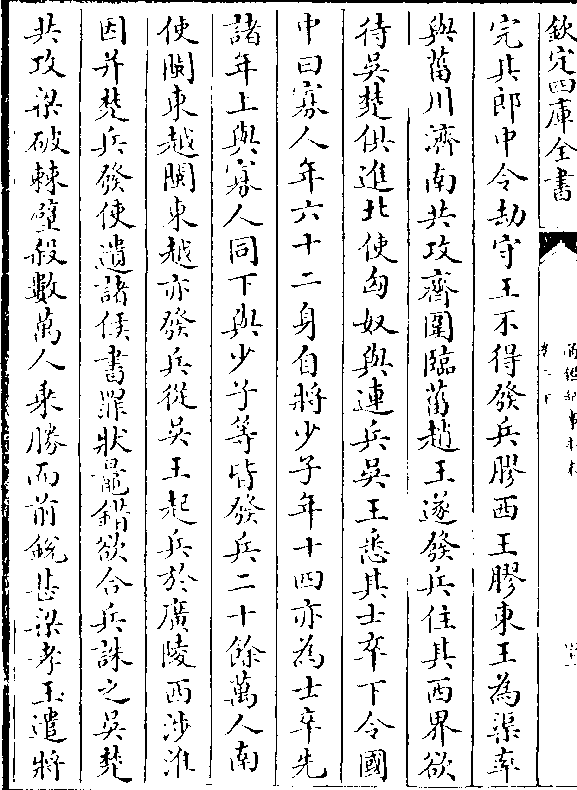 欽定四庫全書
完其郎中令劫守王不得發兵膠西王膠東王為渠率
與菑川濟南共攻齊圍臨菑趙王遂發兵住其西界欲
待吳楚俱進北使匈奴與連兵吳王悉其士卒下令國
中曰寡人年六十二身自將少子年十四亦為士卒先
諸年上與寡人同下與少子等皆發兵二十餘萬人南
使閩東越閩東越亦發兵從吳王起兵於廣陵西涉淮
因并楚兵發使遺諸侯書罪狀鼂錯欲合兵誅之吳楚
共攻梁破棘壁殺數萬人乘勝而前銳甚梁孝王遣將